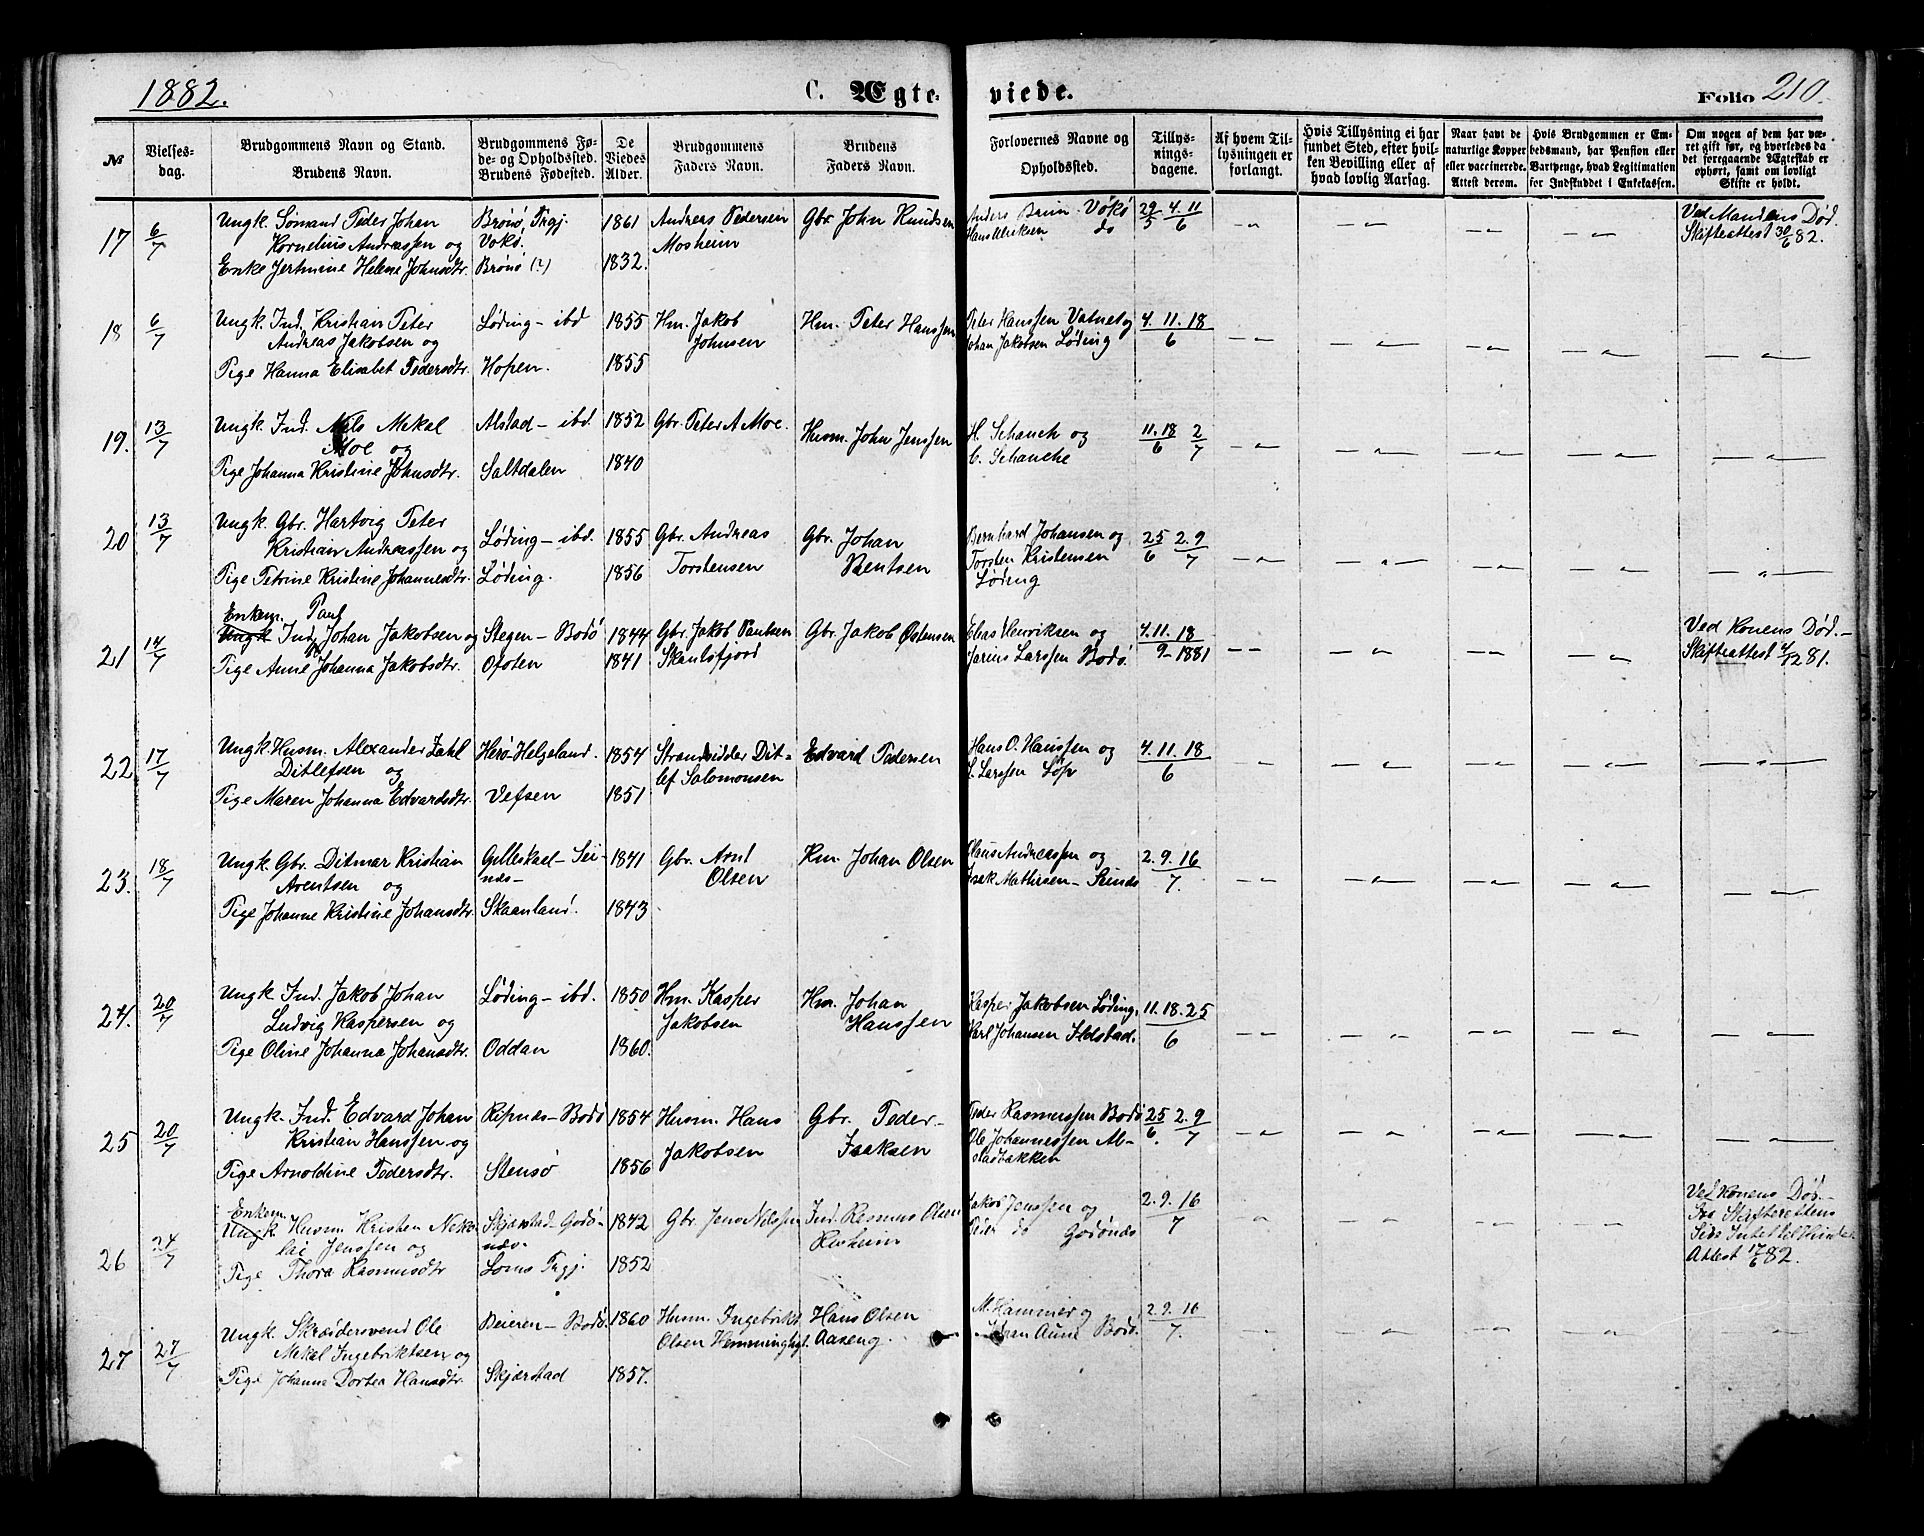 1882.
C. Ægte-
viede.
Folio 210.
№
Vielses-
dag.
Brudgommens Navn og Stand.
Brudens Navn.
Brudgommens Fø-
de- og Opholdssted.
Brudens Fødested.
De
Viedes
Alder.
Brudgommens
Faders Navn.
Brudens
Faders Navn.
Forlovernes Navne og
Opholdssted.
Tillys-
nings-
dagene.
Af hvem Til-
lysningen er
forlangt.
Hvis Tillysning ei har
fundet Sted, efter hvil-
ken Bevilling eller af
hvad lovlig Aarsag.
Naar havt de
naturlige Kopper
eller vaccinerede.
Attest derom.
Hvis Brudgommen er Em-
bedsmand, har Pension eller
Vartpenge, hvad Legitimation
for Indskuddet i Enkekassen.
Om nogen af dem har væ-
ret gift før, og hvorledes da
det foregaaende Ægteskab er
ophørt, samt om lovligt
Skifte er holdt.
17 6/7
Ungk. Sömand Peder Johan
Kornelius Andreassen og
Enke Jertmine Helene Johnsdtr.
Brönö, Trgj.
Vokö.
Brönö (?)
1861
1832.
Andreas Pedersen
Mosheim
Gbr John Knudsen
Anders Bruun Vökö
Hans Ulriksen do
29/5 4.11/6
Ved Mandens Död.
Skifteattest 30/6 82.
18 6/7
Ungk. Ind. Kristian Peter
Andreas Jakobsen og
Pige Hanna Elisabet Pedersdtr.
Löding - ibd
Hopen.
1855
1855
Hm. Jakob
Johnsen
Hm. Peter Hanssen
Peter Hanssen Vatnet og
Johan Jakobsen Löding
4.11.18/6
19. 13/7
Ungk. Ind. Nils Mekal
Moe og
Pige Johanna Kristine Johnsdtr.
Alstad - ibd.
Saltdalen
1852
1840
Gbr. Peter A Moe.
Husm. John Jenssen
H. Schanch og
C. Schanche
11.18/6 2/7
20 13/7
Ungk. Gbr. Hartvig Peter
Kristian Andreassen og
Pige Petrine Kristine Johannesdtr.
Löding - ibd.
Löding.
1855
1856
Gbr. Andreas
Torstensen
Gbr. Johan
Bentsen
Bernhard Johansen og
Torsten Kristensen
Löding
25/6 2.9/7
21 14/7
Enkem. Paul
Ungk Ind Johan Jakobsen og
Pige Anne Johanna Jakobsdtr.
Stegen - Bodö
Ofoten
1844
1841
Gbr. Jakob Paulsen
Skaulsfjord
Gbr. Jakob Östensen
Elias Henriksen og
Jarius Larssen Bodö
4.11.18/9 - 1881
Ved Konens Död. -
Skifteattest 4/12 81.
22 17/7
Ungk Husm. Alexander Zahl
Ditlefsen og
Pige Maren Johanna Edvardsdtr.
Herö-Helgeland.
Vefsen
1854
1851
Strandsidder Dit-
lef Salomonsen
Edvard Pedersen
Hans O. Hanssen og
Larssen Löp
4.11.18/6
23. 18/7
Ungk. Gbr. Ditmar Kristian
Arentsen og
Pige Johanne Kristine Johansdtr
Gilleskaal - Sei-
næs -
Skaanland.
1841
1843
Gbr. Arnt
Olsen
Hm. Johan Olsen
Claus Andreassen og
Isak Mathisen - Seinæs
2.9.16/7.
24. 20/7
Ungk Ind. Jakob Johan
Ludvig Kaspersen og
Pige Oline Johanna Johansdtr.
Löding - ibd.
Oddan
1850
1860.
Hm. Kasper
Jakobsen
Hm. Johan
Hanssen
Kasper Jakobsen Löding.
Karl Johansen Ildstad.
11.18.25/6
25 20/7
Ungk. Ind. Edvard Johan
Kristian Hanssen og
Pige Arnoldine Pedersdtr.
Ripnæs - Bodö
Stensö
1854
1856
Husm. Hans
Jakobsen
Gbr. Peder
Isaksen
Peder Rasmussen Bodö
Ole Johannessen Al-
stadbakken
25/6. 2.9/7
26 24/7
Enkem.
Ungk Husm Kristen Neko-
lai Jenssen og
Pige Thora Rasmusdtr
Skjærstad - Godö-
næs -
Loms Prgj.
1842
1852
Gbr. Jens Nilssen
Ind. Rasmus Olsen
Jakob Jenssen og
Peder do Godönæs
2.9.16/7
Ved Konens Död. -
Attest 17/6 82.
27 27/7
Ungk. Skrædersvend Ole
Mekal Ingebriktsen og
Pige Johanna Dortea Hansdtr.
Beieren - Bodö.
Skjærstad
1860
1857.
Husm. Ingebrikt
Olsen
Hans Olsen
Aaseng.
M. Hammer og
Johan Aune Bodö.
2.9.16/7.